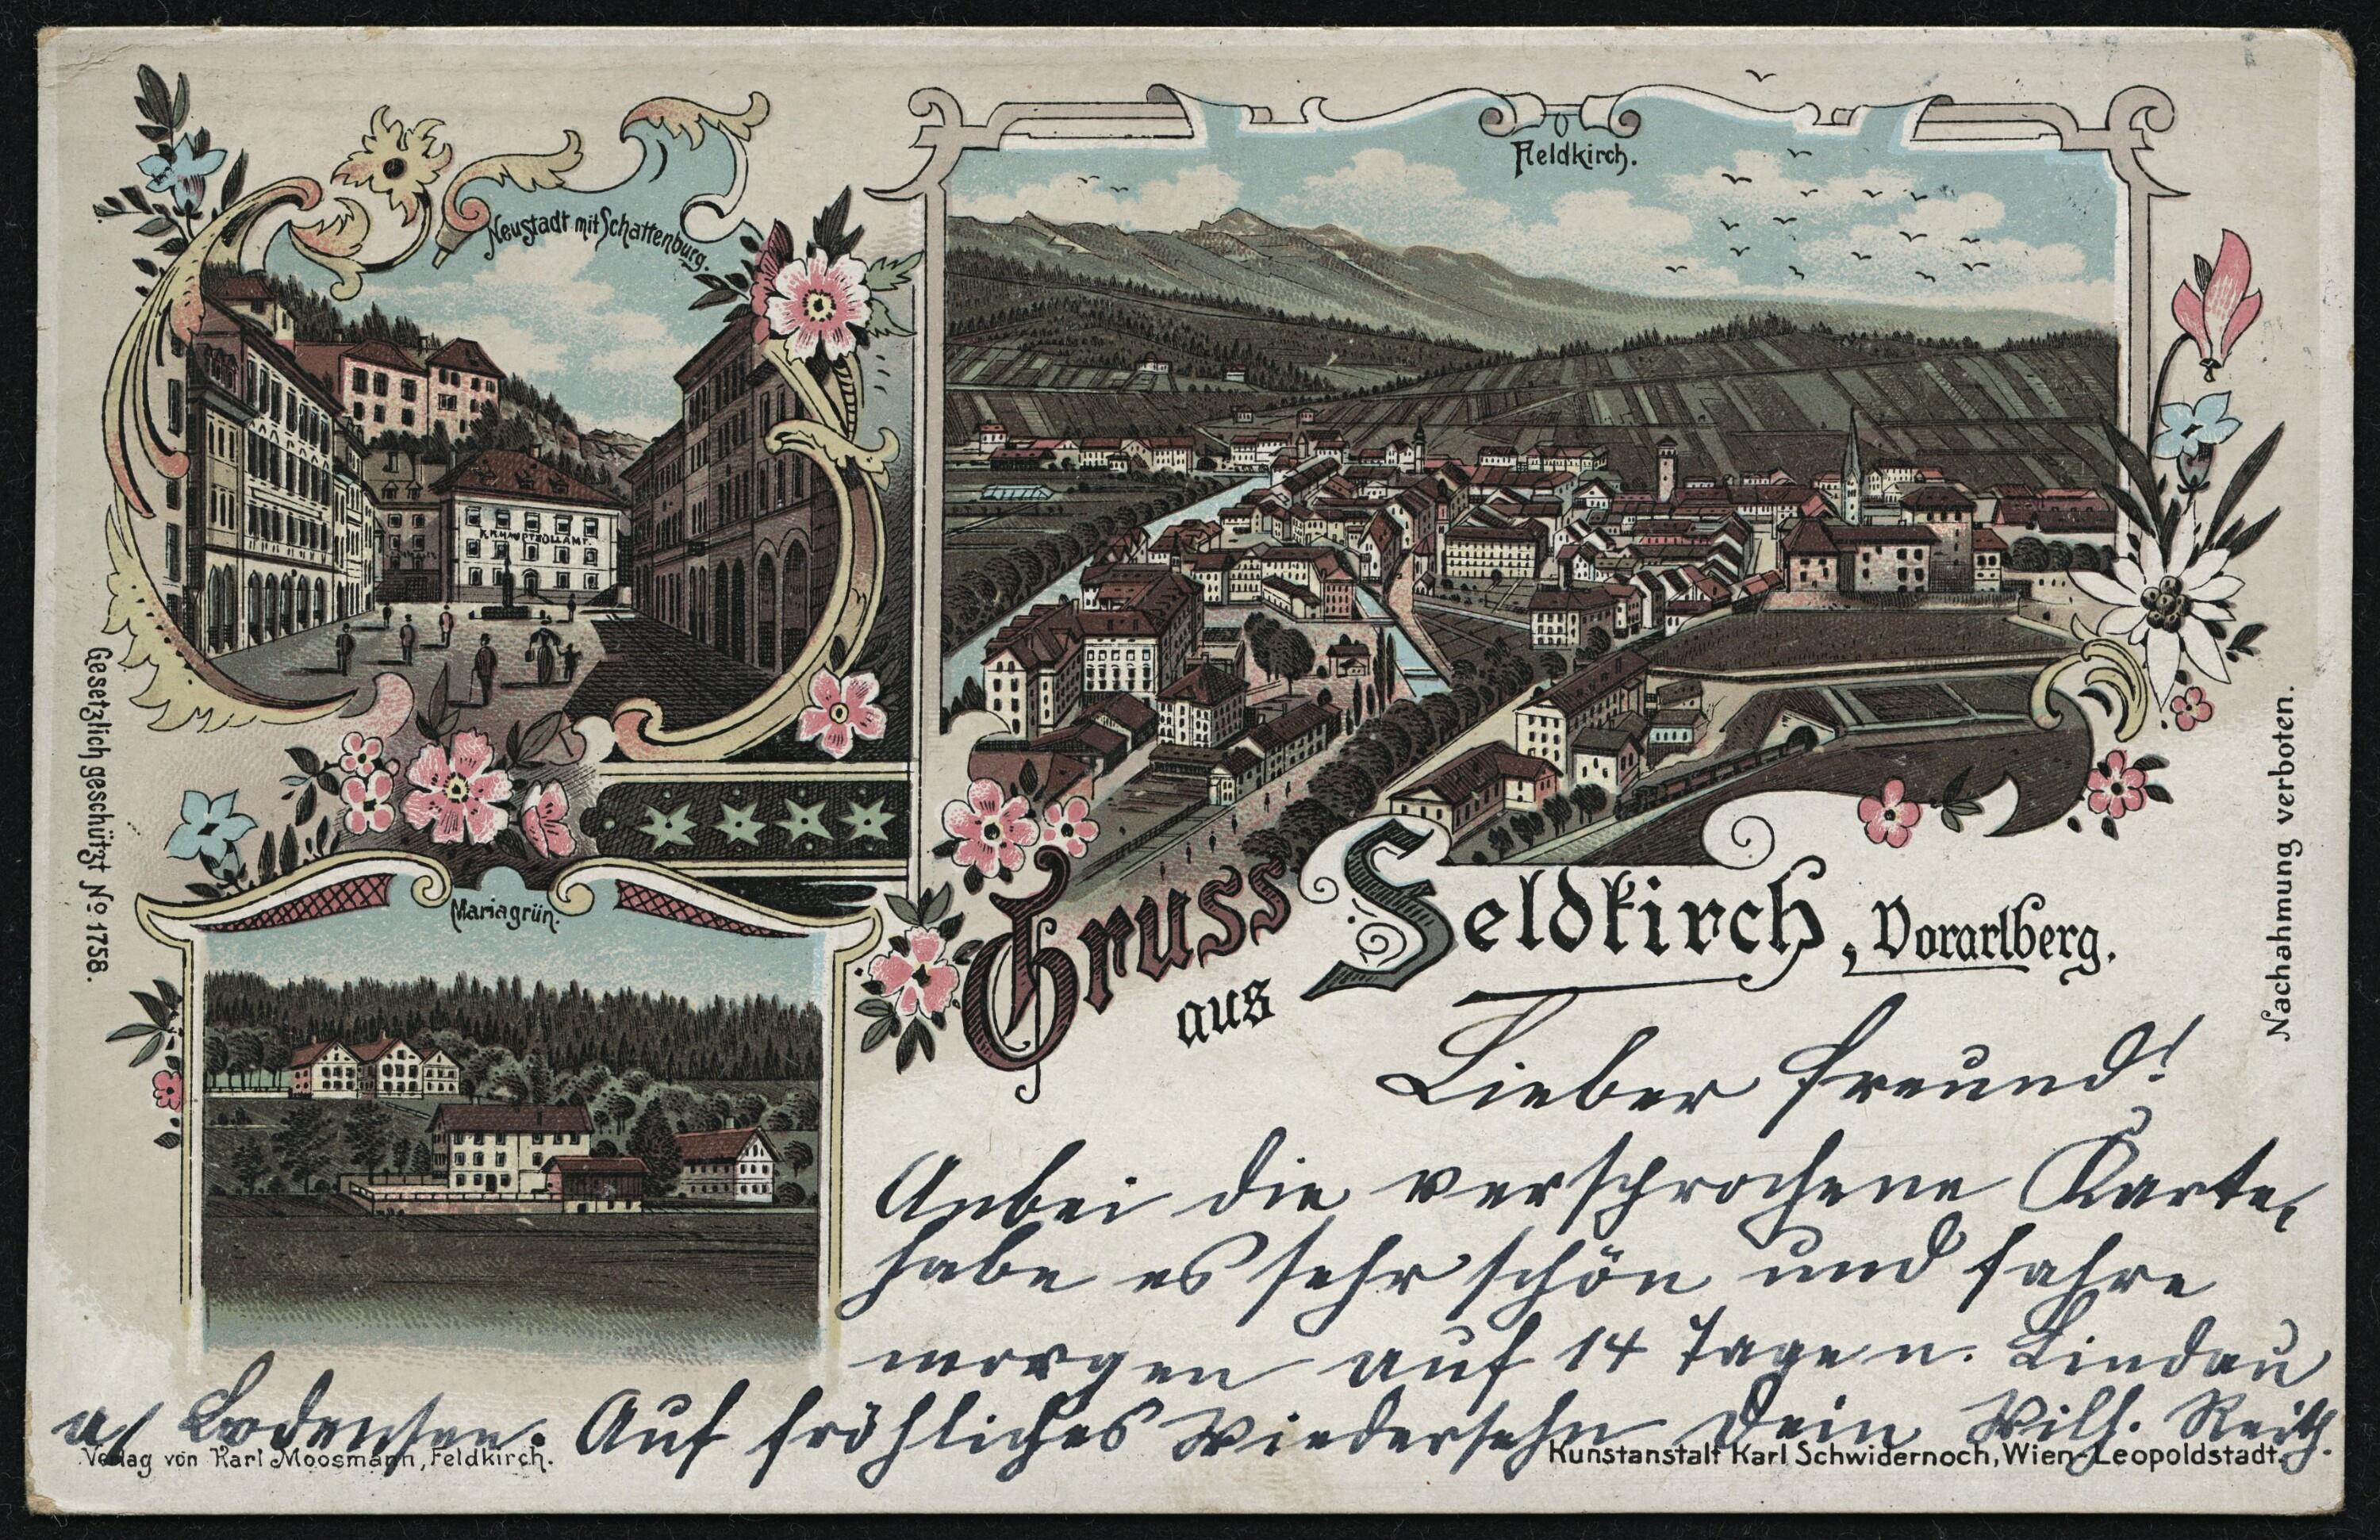 Neustadt mit Schattenburg.
K.K. HAUPTZOLLAMT.
Feldkirch.
Gesetzlich geschützt No. 1758.
Mariagrün.
Nachahmung verboten.
Gruss
aus Feldkirch, Vorarlberg.
Lieber Freund!
Anbei die versprochene Karte,
habe es sehr schön und fahre
morgen auf 14 Tage n. Lindau
a/ Bodensee. Auf fröhliches Wiedersehn Dein Wilh. Reith.
Verlag von Karl Moosmann, Feldkirch.
Kunstanstalt Karl Schwidernoch, Wien-Leopoldstadt.